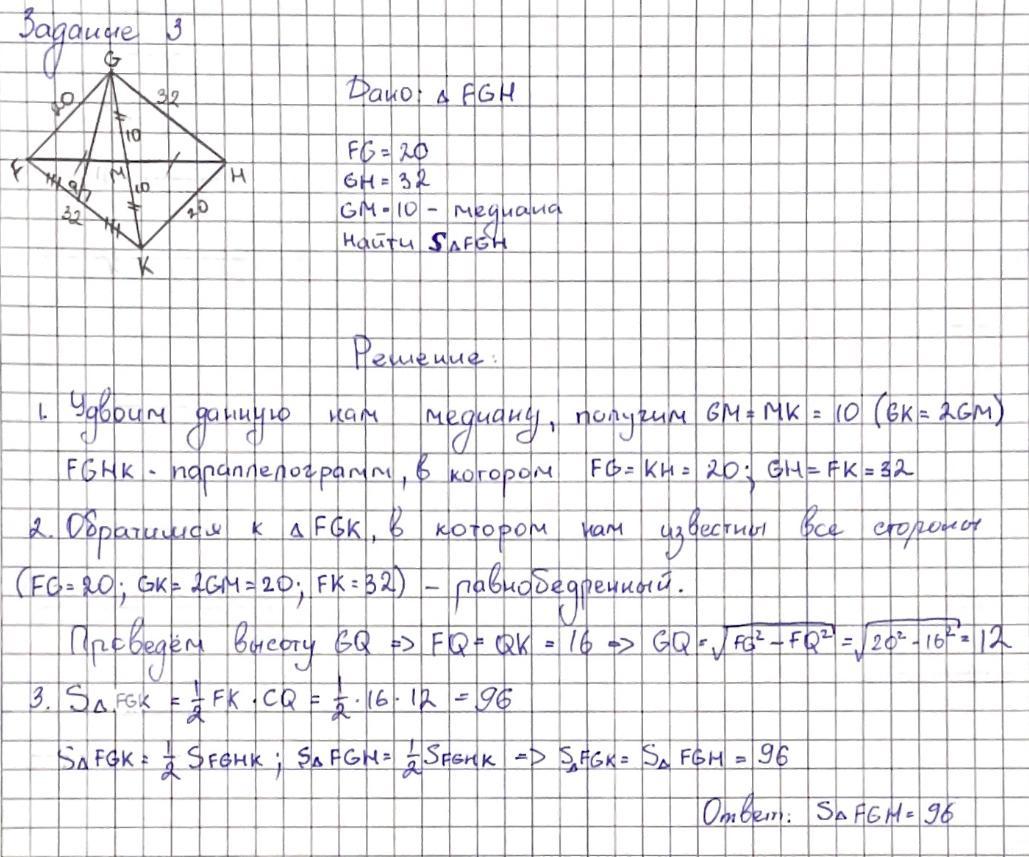 Задание 3
G
20
32
10
F
M
H
Q
10
32
20
K
Дано: △ FGH
FG = 20
GH = 32
GM = 10 - медиана
Найти S△FGH
Решение:
1. Удвоим данную нам медиану, получим GM = MK = 10 (GK = 2GM)
FGHK - параллелограмм, в котором FG = KH = 20; GH = FK = 32
2. Обратимся к △ FGK, в котором нам известны все стороны
(FG = 20; GK = 2GM = 20; FK = 32) - равнобедренный.
Проведём высоту GQ => FQ = QK = 16 => GQ = √(FG² - FQ²) = √(20² - 16²) = 12
3. S△FGK = 1/2 FK · CQ = 1/2 · 16 · 12 = 96
S△FGK = 1/2 SFGHK; S△FGH = 1/2 SFGHK => S△FGK = S△FGH = 96
Ответ: S△FGH = 96